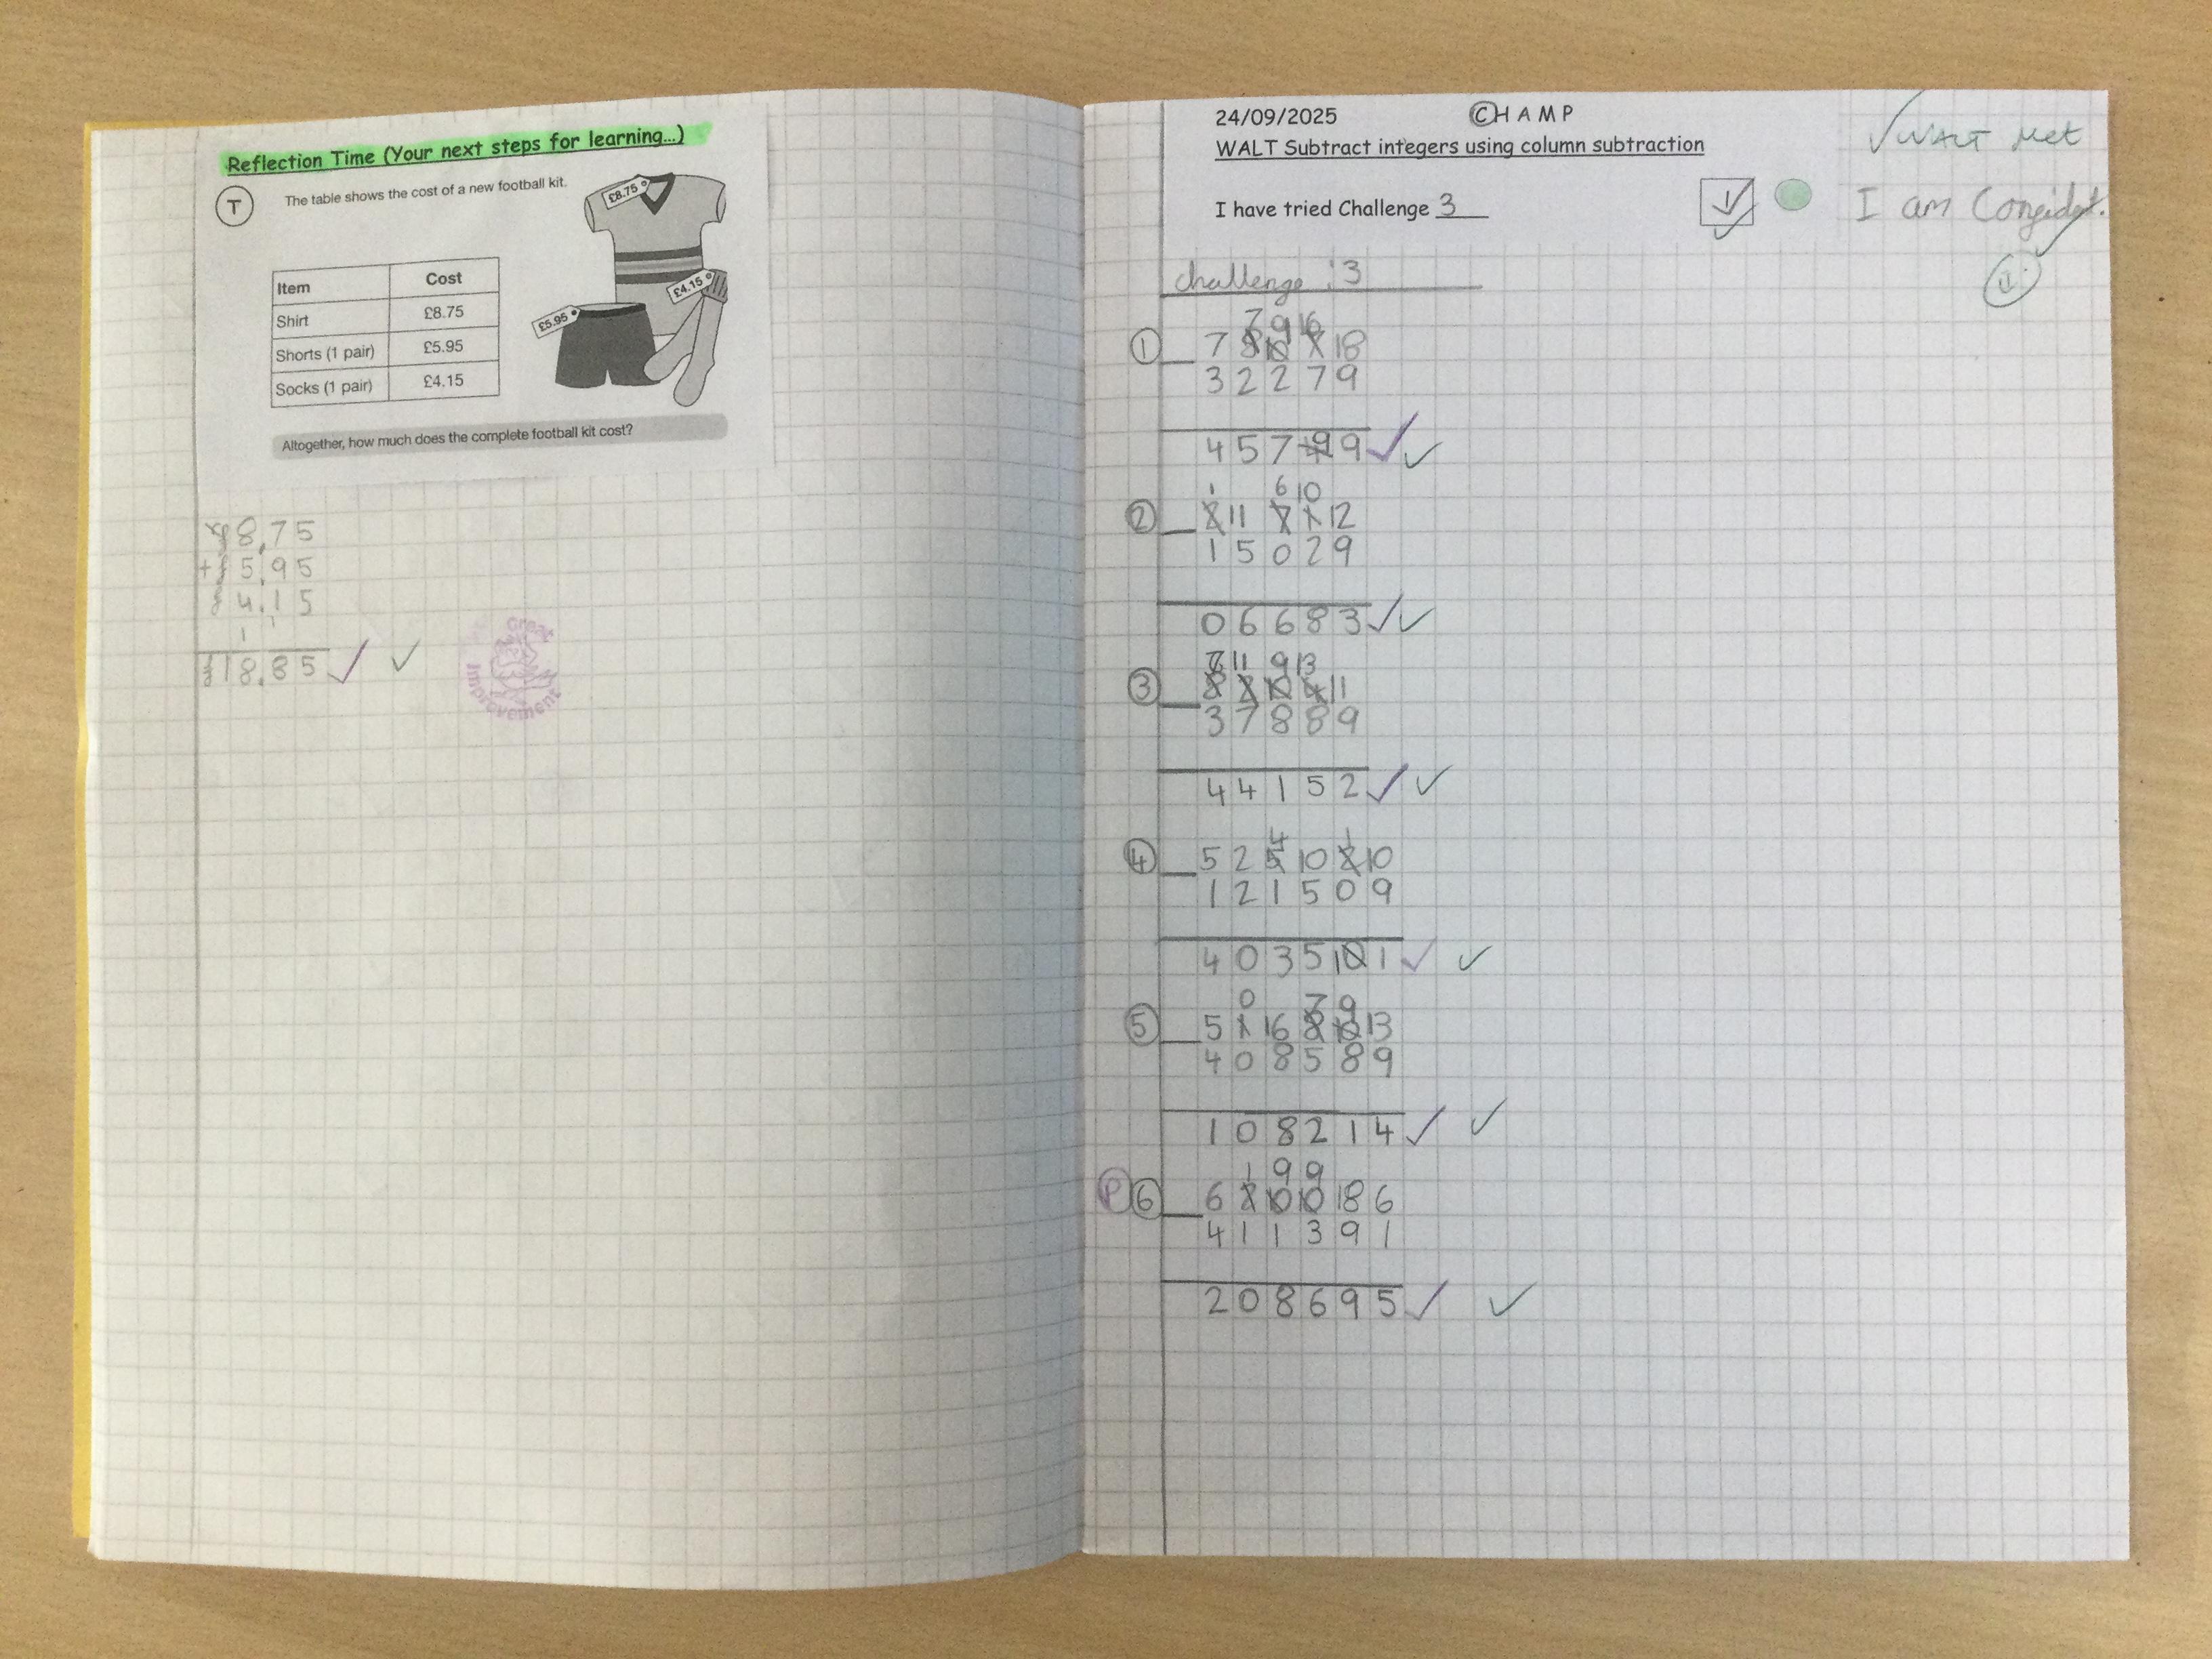 Reflection Time (Your next steps for learning...)
T
The table shows the cost of a new football kit.
£8.75
£4.15
£5.95
Item Cost
Shirt £8.75
Shorts (1 pair) £5.95
Socks (1 pair) £4.15
Altogether, how much does the complete football kit cost?
8.75
+ 5.95
4.15
1 1
£18.85
Great Improvement
24/09/2025 CHAMP
WALT Subtract integers using column subtraction
I have tried Challenge 3
WALT Met
I am Confident.
Challenge : 3
7 9 16
1 7 8 10 7 18
3 2 2 7 9
4 5 7 9 9
1 6 10
2 2 11 7 1 12
1 5 0 2 9
0 6 6 8 3
7 11 9 13
3 8 2 10 4 11
3 7 8 8 9
4 4 1 5 2
4 1
4 5 2 5 10 2 10
1 2 1 5 0 9
4 0 3 5 1 0 1
0 7 9
5 5 1 16 8 10 13
4 0 8 5 8 9
1 0 8 2 1 4
1 9 9
P 6 6 2 10 10 18 6
4 1 1 3 9 1
2 0 8 6 9 5